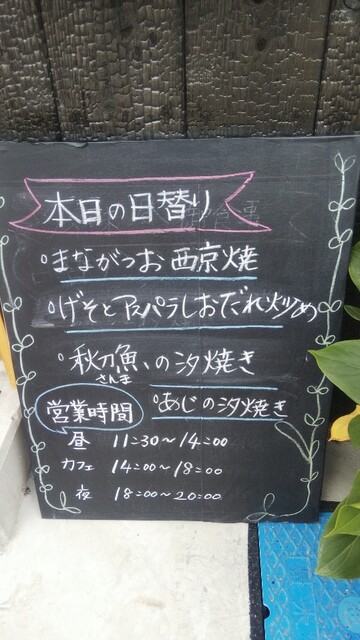 本日の日替り
まながつお西京焼
げそとアスパラしおだれ炒め
秋刀魚の汐焼き
さんま
あじの汐焼き
営業時間
昼 11:30～14:00
カフェ 14:00～18:00
夜 18:00～20:00